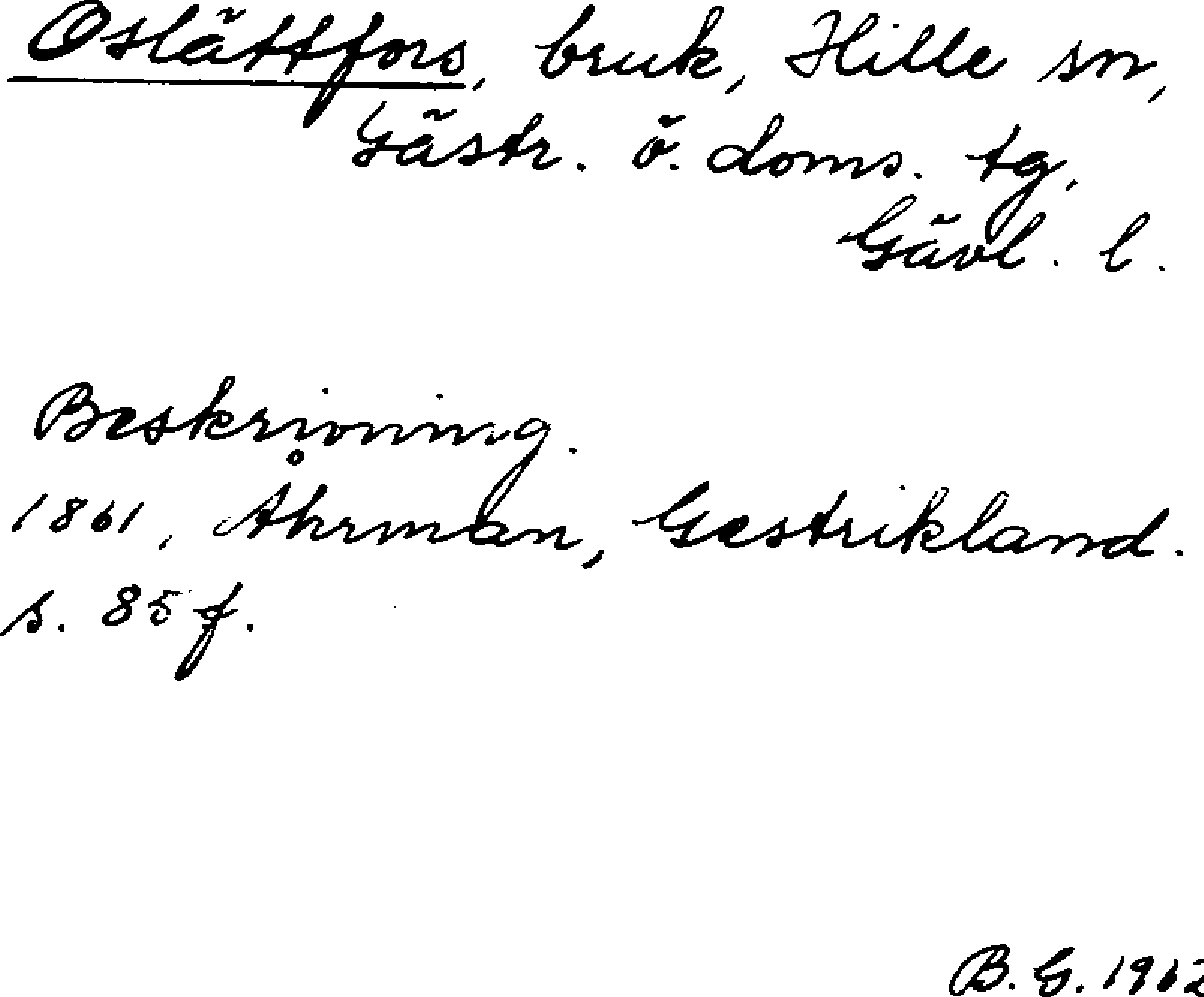 Oslättfors, bruk, Hille sn,
Gästr. ö. doms. tg,
Gävl. l.
Beskrivning.
1861, Åhrman, Gestrikland.
s. 85 f.
B. G. 1962